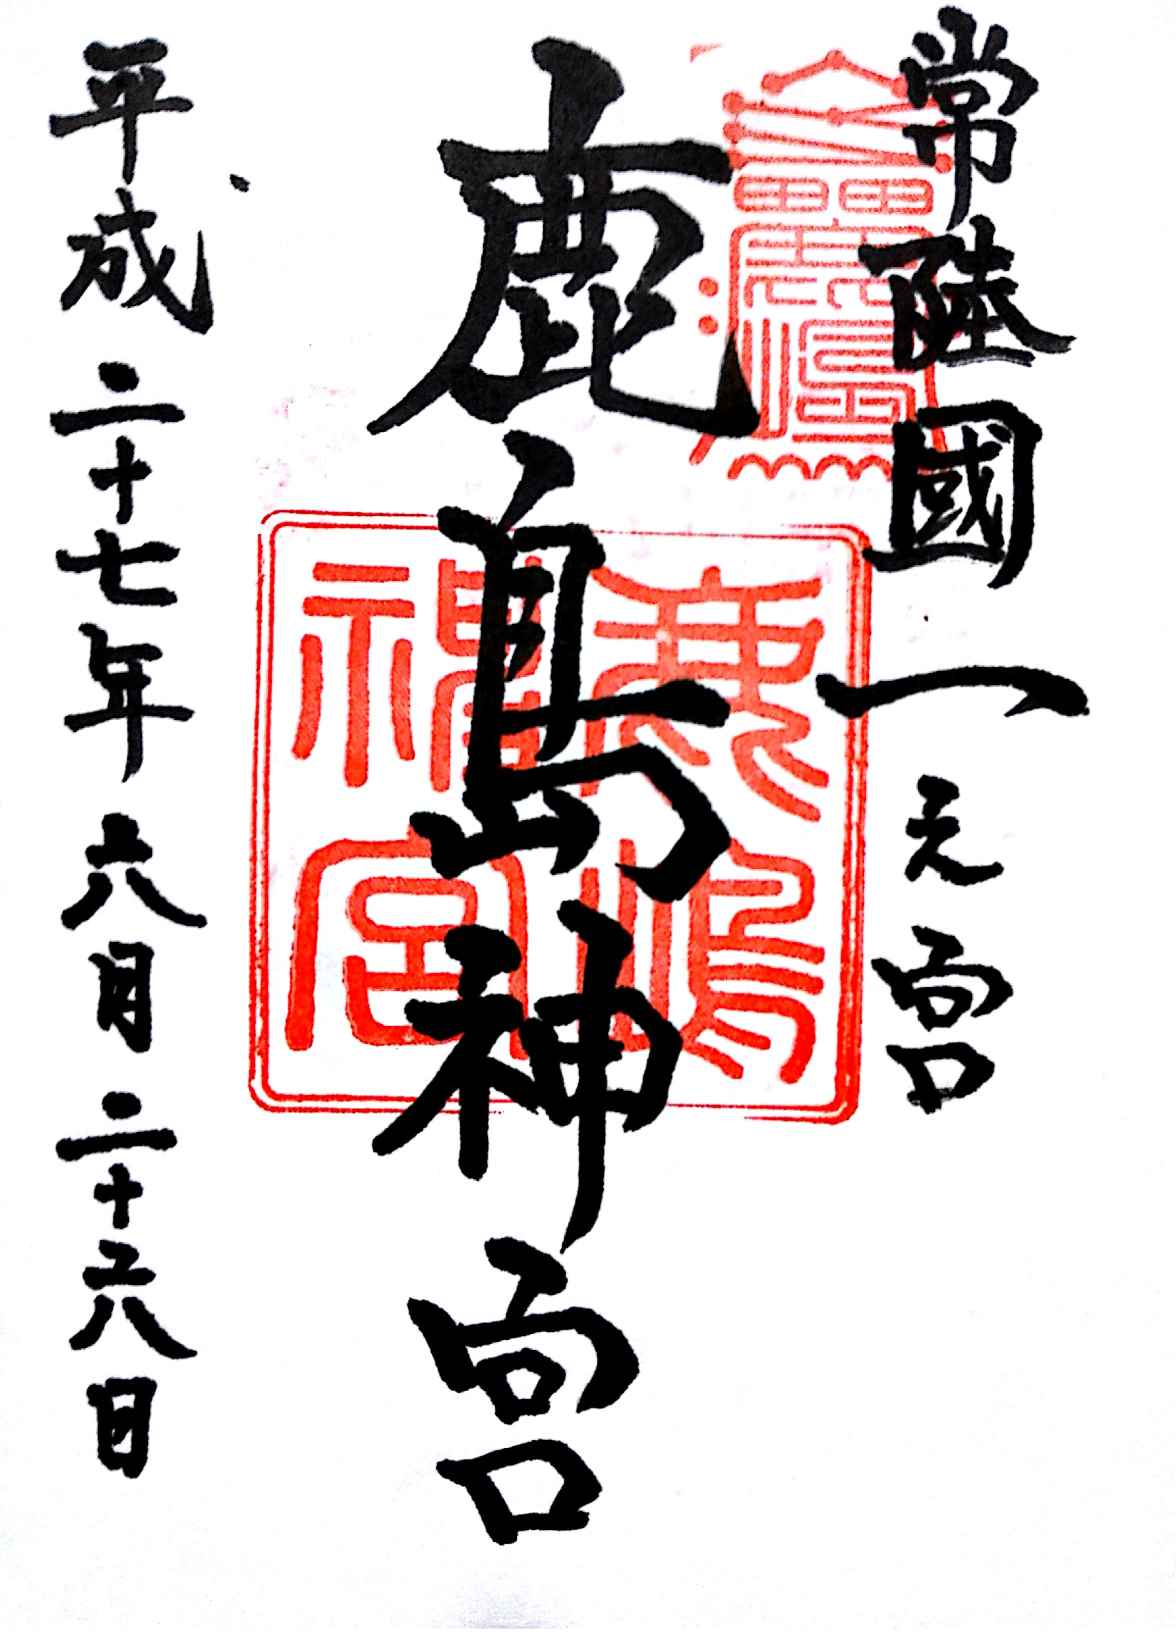 常陸國一之宮
鹿島神宮
平成二十七年六月二十六日
鹿嶋
神宮